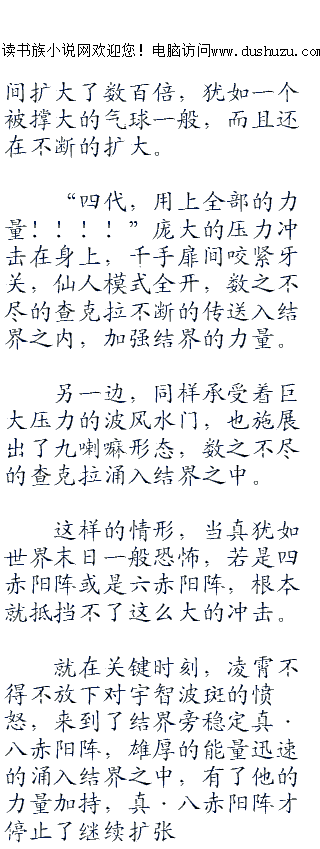 读书族小说网欢迎您！电脑访问www.dushuzu.com
间扩大了数百倍，犹如一个
被撑大的气球一般，而且还
在不断的扩大。
“四代，用上全部的力
量！！！！”庞大的压力冲
击在身上，千手扉间咬紧牙
关，仙人模式全开，数之不
尽的查克拉不断的传送入结
界之内，加强结界的力量。
另一边，同样承受着巨
大压力的波风水门，也施展
出了九喇嘛形态，数之不尽
的查克拉涌入结界之中。
这样的情形，当真犹如
世界末日一般恐怖，若是四
赤阳阵或是六赤阳阵，根本
就抵挡不了这么大的冲击。
就在关键时刻，凌霄不
得不放下对宇智波斑的愤
怒，来到了结界旁稳定真·
八赤阳阵，雄厚的能量迅速
的涌入结界之中，有了他的
力量加持，真·八赤阳阵才
停止了继续扩张